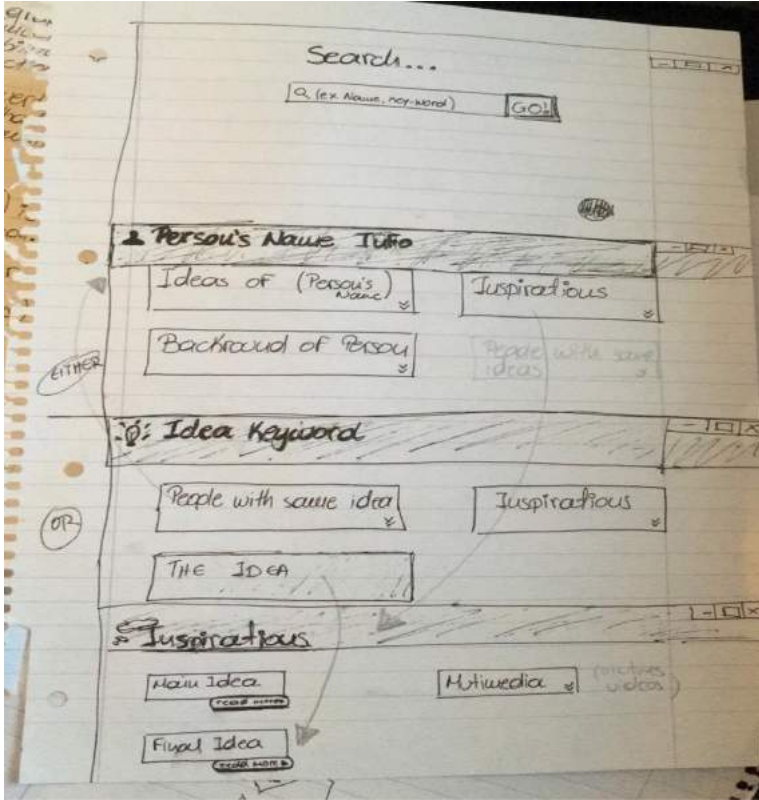 Search...
(ex Name, key-word)
GO!
Person's Name Info
Ideas of (Person's Name)
Inspirations
Backround of Person
People with same
ideas
EITHER
Idea Keyword
People with same idea
Inspirations
OR
THE IDEA
Inspirations
Main Idea
read more
Mutimedia
(pictures
videos)
Final Idea
read more